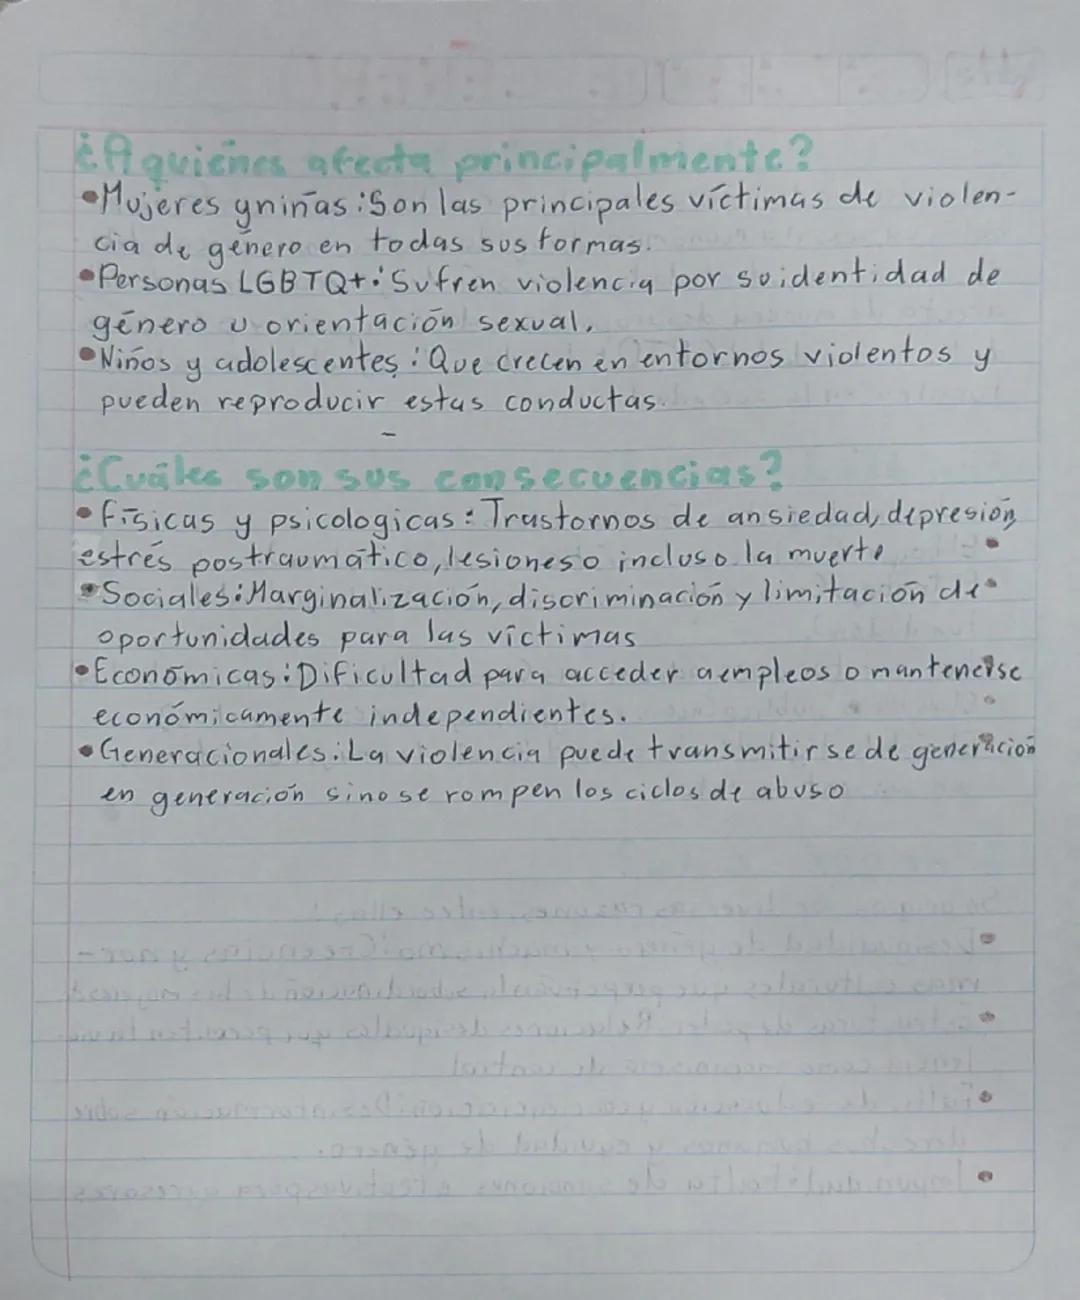 ¿A quienes afecta principalmente?
•Mujeres y niñas: Son las principales víctimas de violen-
cia de género en todas sus formas.
•Personas LGBTQ+: Sufren violencia por su identidad de
género u orientación sexual.
•Niños y adolescentes: Que crecen en entornos violentos y
pueden reproducir estas conductas.
¿Cuáles son sus consecuencias?
•Físicas y psicologicas: Trastornos de ansiedad, depresión,
estrés postraumático, lesiones o incluso la muerte
•Sociales: Marginalización, discriminación y limitación de
oportunidades para las víctimas
•Económicas: Dificultad para acceder a empleos o mantenerse
económicamente independientes.
•Generacionales: La violencia puede transmitirse de generación
en generación si no se rompen los ciclos de abuso